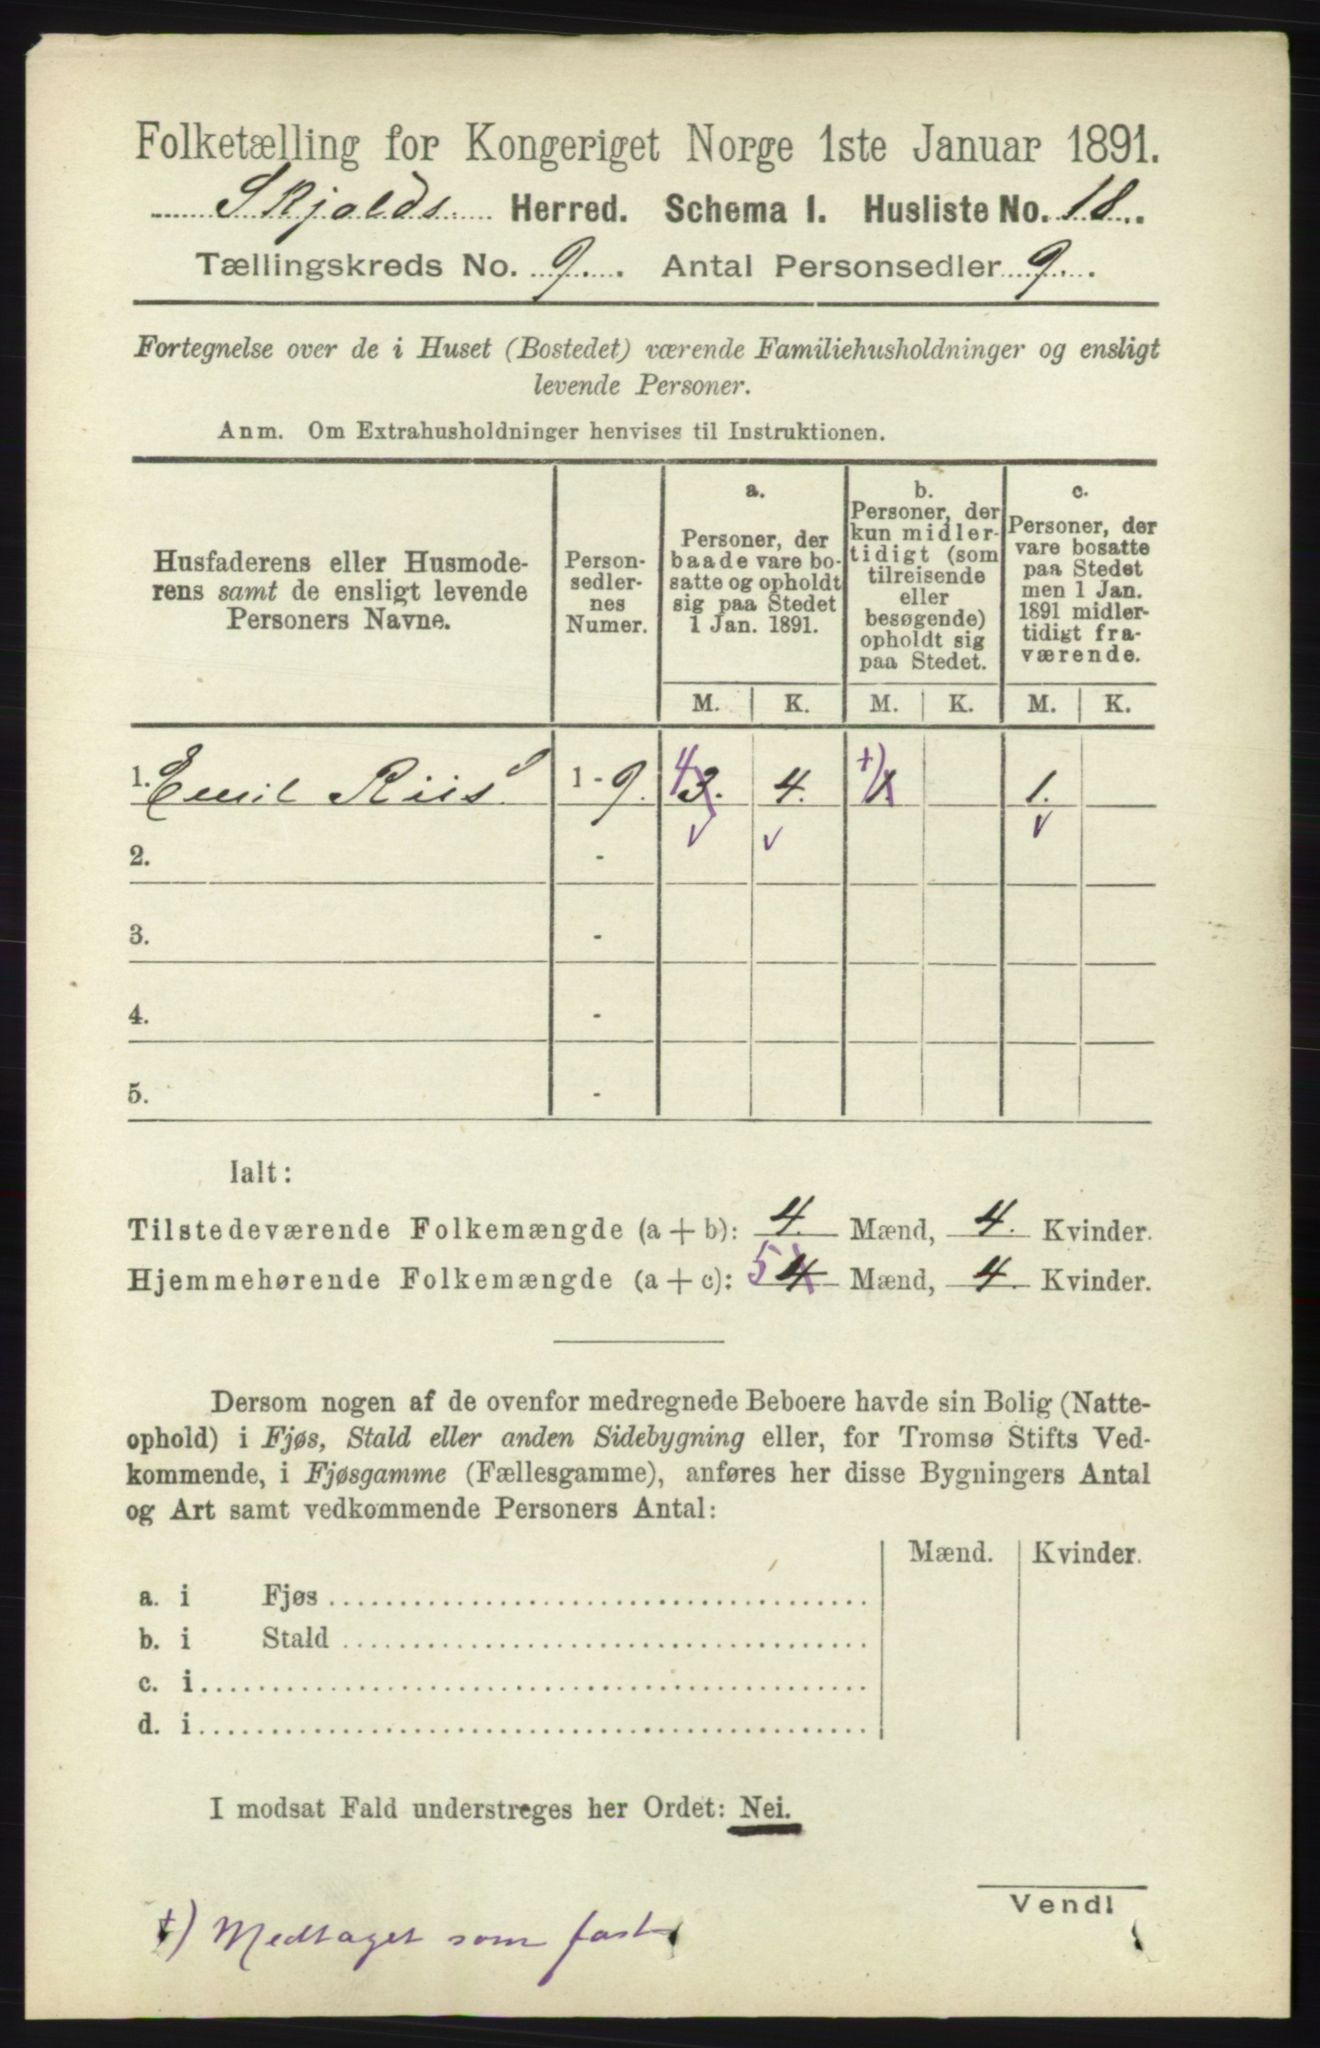 Folketælling for Kongeriget Norge 1ste Januar 1891.
Skjolds Herred. Schema I. Husliste No. 18.
Tællingskreds No. 9. Antal Personsedler 9.
Fortegnelse over de i Huset (Bostedet) værende Familiehusholdninger og ensligt
levende Personer.
Anm. Om Extrahusholdninger henvises til Instruktionen.
Husfaderens eller Husmode-
rens samt de ensligt levende
Personers Navne.
Person-
sedler-
nes
Numer.
a.
Personer, der
baade vare bo-
satte og opholdt
sig paa Stedet
1 Jan. 1891.
b.
Personer, der
kun midler-
tidigt (som
tilreisende
eller
besøgende)
opholdt sig
paa Stedet.
c.
Personer, der
vare bosatte
paa Stedet
men 1 Jan.
1891 midler-
tidigt fra-
værende.
M. K. M. K. M. K.
1. Emil Riis 1 - 9. 4 3. 4. +) 1 1.
2. -
3. -
4. -
5. -
Ialt:
Tilstedeværende Folkemængde (a + b): 4. Mænd, 4. Kvinder.
Hjemmehørende Folkemængde (a + c): 5 4 Mænd, 4. Kvinder.
Dersom nogen af de ovenfor medregnede Beboere havde sin Bolig (Natte-
ophold) i Fjøs, Stald eller anden Sidebygning eller, for Tromsø Stifts Ved-
kommende, i Fjøsgamme (Fællesgamme), anføres her disse Bygningers Antal
og Art samt vedkommende Personers Antal:
Mænd. Kvinder.
a. i Fjøs
b. i Stald
c. i
d. i
I modsat Fald understreges her Ordet: Nei.
Vend!
+) Medtaget som fast